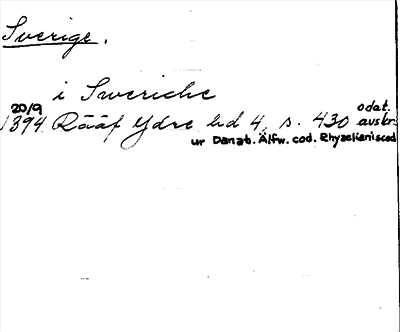 Sverige.
i Sweriche
20/9
1394 Rääf Ydre bd 4, s. 430 odat. avskr.
ur Danab. Älfw. cod. Rhyzelianiscod